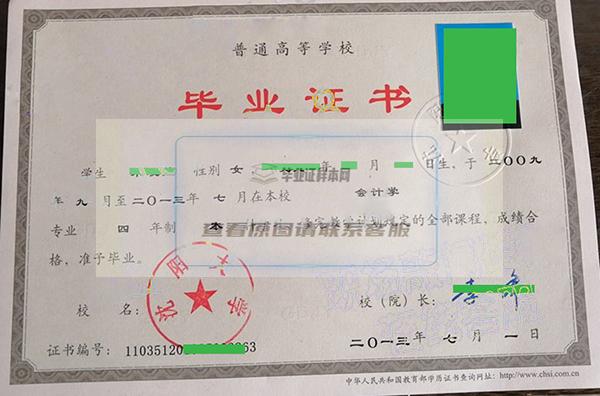 普通高等学校
毕业证书
学生 性别 女, 年 月 日生,于二〇〇九
年 九 月至二〇一三年 七 月在本校 会计学
专业 四 年制 本 定的全部课程,成绩合
格,准予毕业。
毕业证样本网
查看原图请联系客服
校 名: 校(院)长:
沈阳 学
二〇一三年 七 月 一 日
证书编号: 110351201 63
中华人民共和国教育部学历证书查询网址:http://www.chsi.com.cn